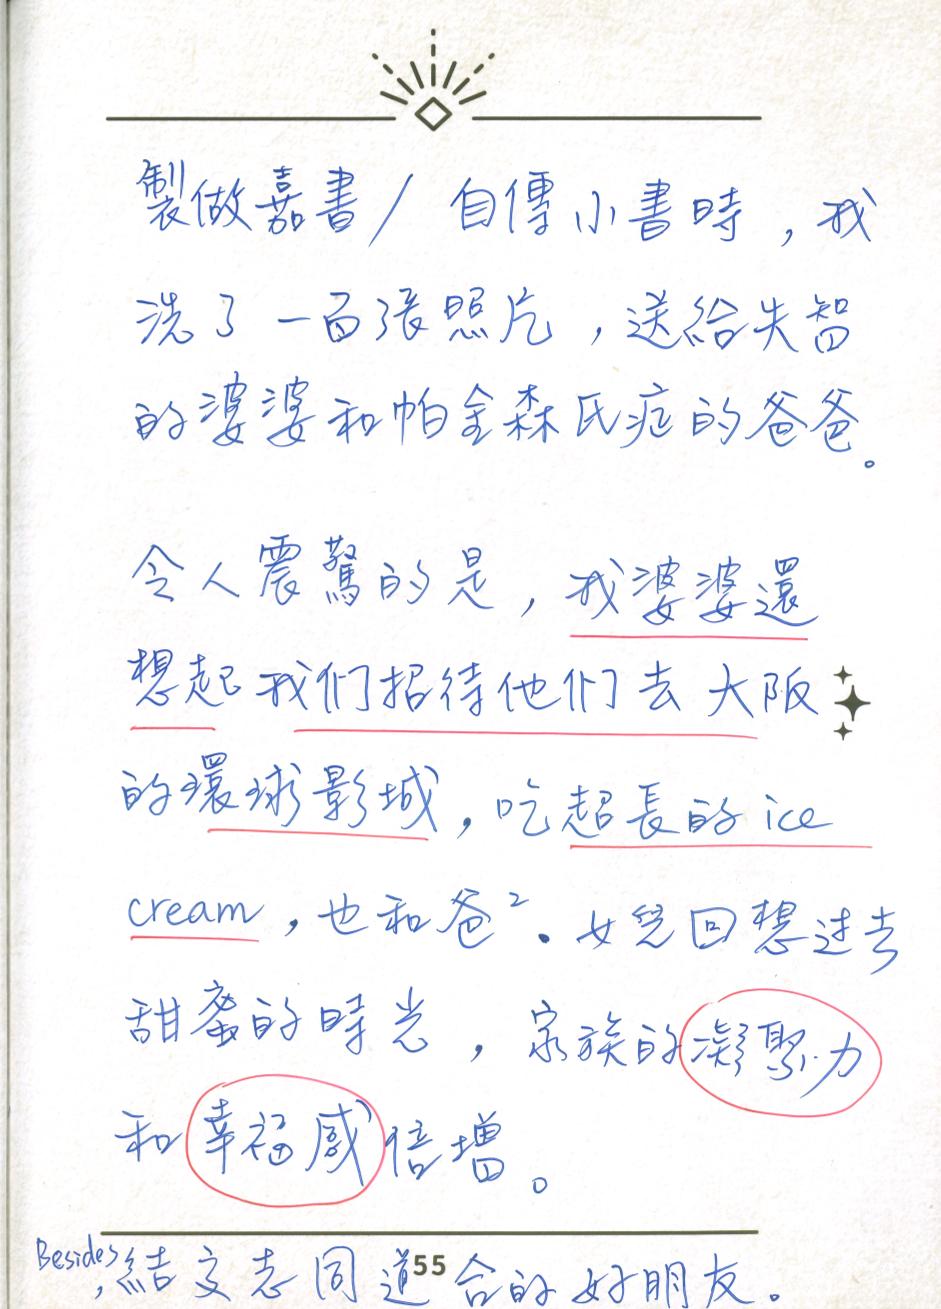 製做嘉書/自傳小書時，我
洗了一百張照片，送給失智
的婆婆和帕金森氏症的爸爸。
令人震驚的是，我婆婆還
想起我们招待他们去大阪
的環球影城，吃超長的ice
cream，也和爸²、女兒回想过去
甜蜜的時光，家族的凝聚力
和幸福感倍增。
Besides，結交志同道合的好朋友。
55